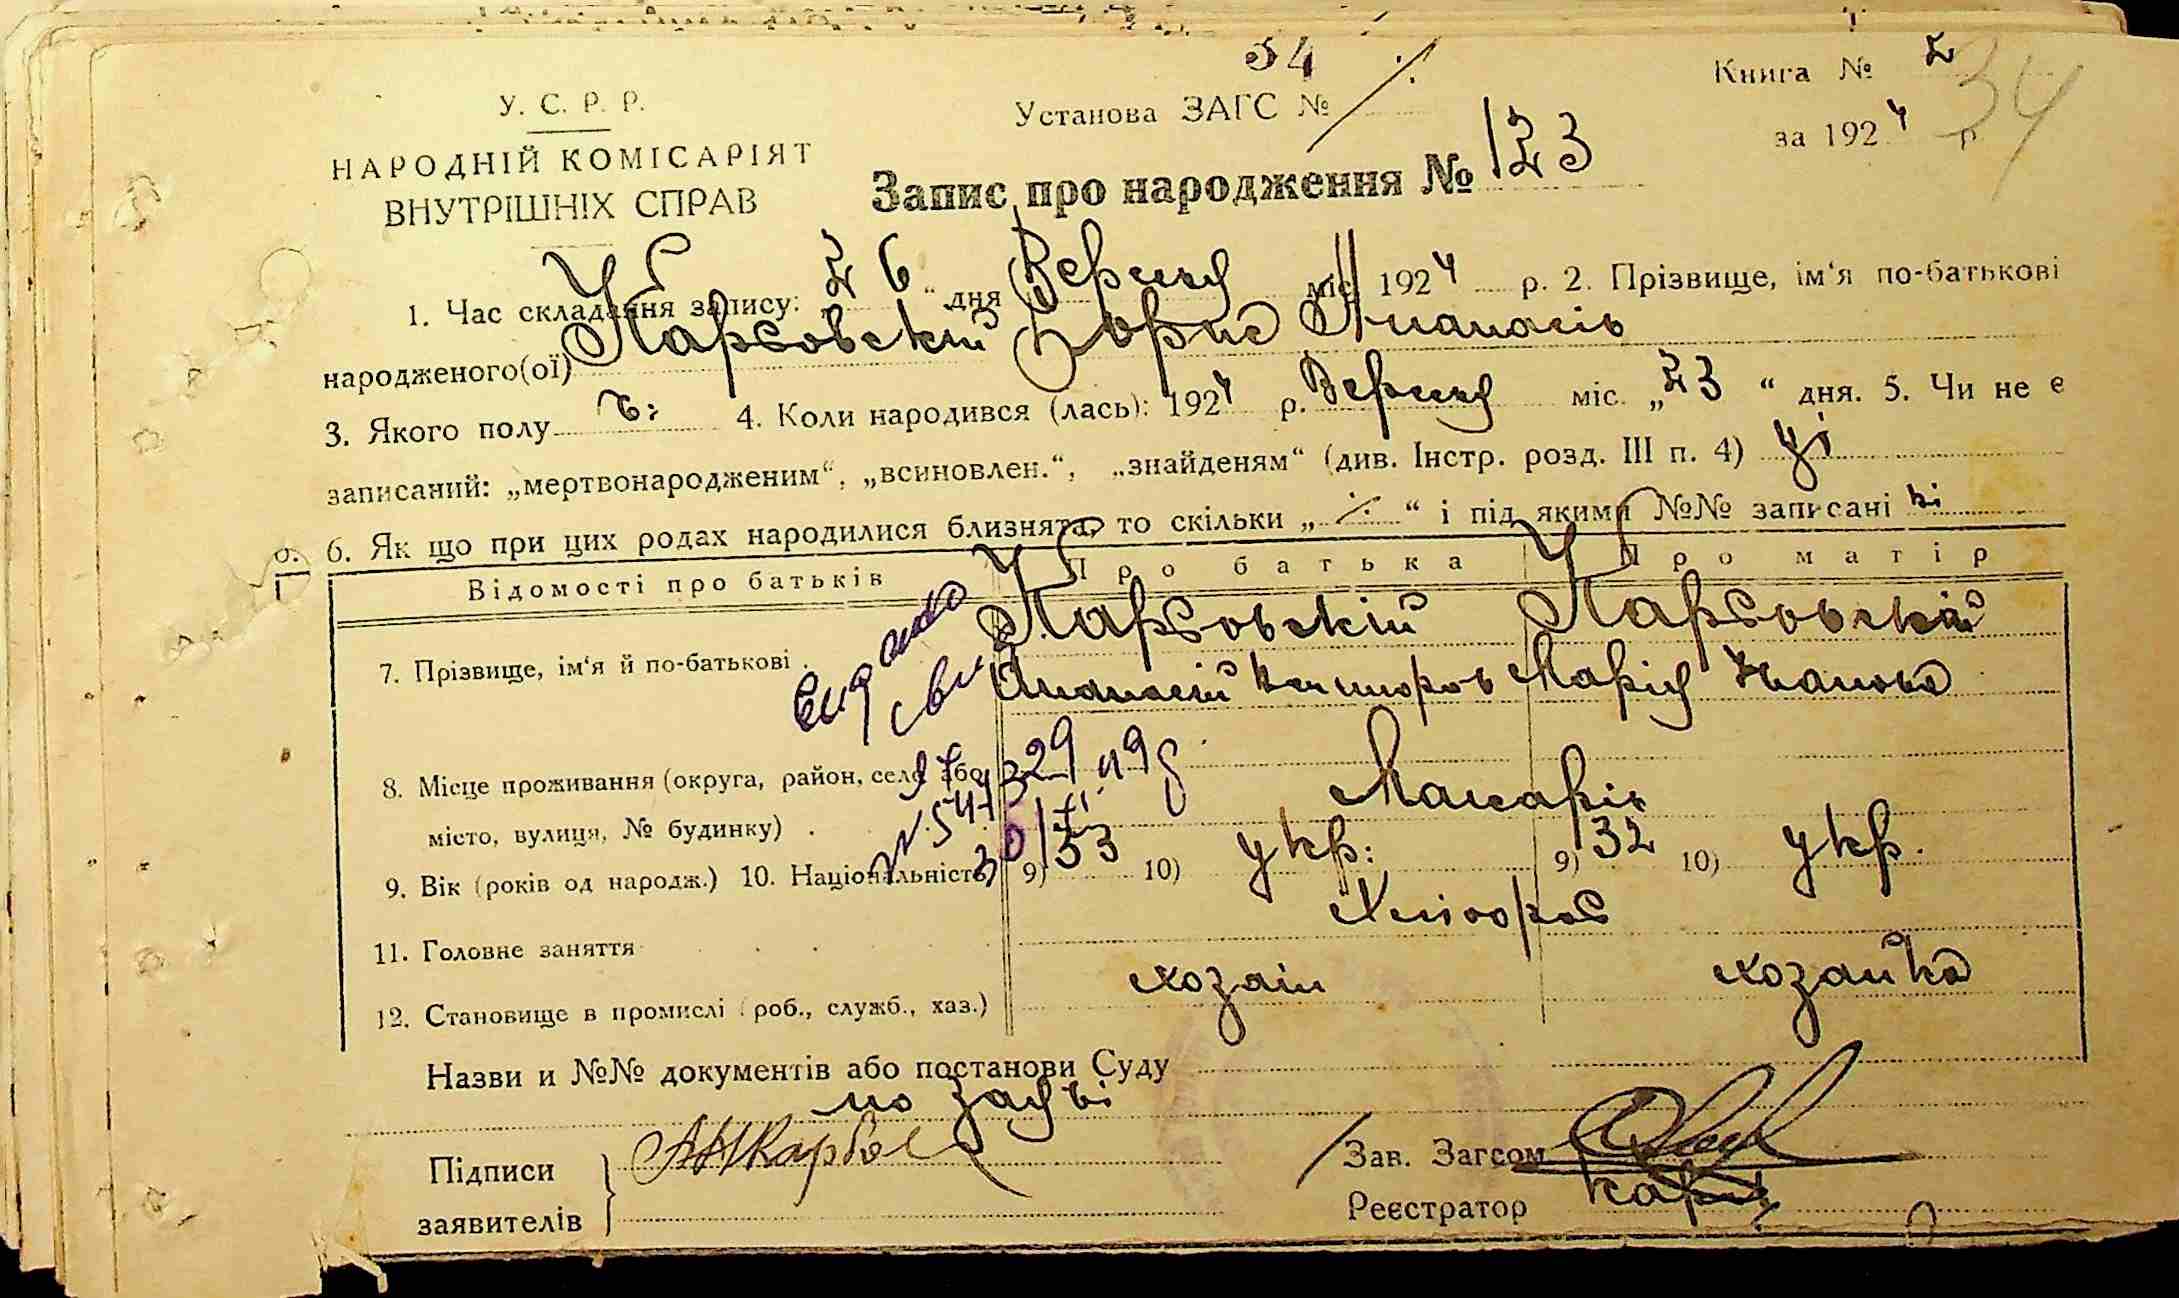 34
Книга № 2 34
У. С. Р. Р.
Установа ЗАГС №
за 1924 р.
НАРОДНІЙ КОМІСАРІЯТ
ВНУТРІШНІХ СПРАВ
Запис про народження № 123
1. Час складання запису: 26 " дня Версня міс. 1924 р. 2. Прізвище, ім'я по-батькові
народженого(ої) Карбовскій Борис Апанасів
3. Якого полу ч: 4. Коли народився (лась): 1924 р. Версня міс. „23 “ дня. 5. Чи не є
записаний: „мертвонародженим“, „всиновлен.“, „знайденям“ (див. Інстр. розд. III п. 4) ні
6. Як що при цих родах народилися близнята, то скільки „ ./. “ і під якими №№ записані ні
Відомості про батьків
Про батька
Про матір
7. Прізвище, ім'я й по-батькові .
Карбовскій
Апанасій
Карбовскій
Марія Іванова
8. Місце проживання (округа, район, село або
місто, вулиця, № будинку) .
Макарів
9. Вік (років од народж.) 10. Національність
9) 33 10) укр:
9) 32 10) укр.
11. Головне заняття
Хлібороб
12. Становище в промислі (роб., служб., хаз.)
хозаін
хозайка
Назви и №№ документів або постанови Суду
по заяві
Підписи
заявителів
Зав. Загсом
Реєстратор